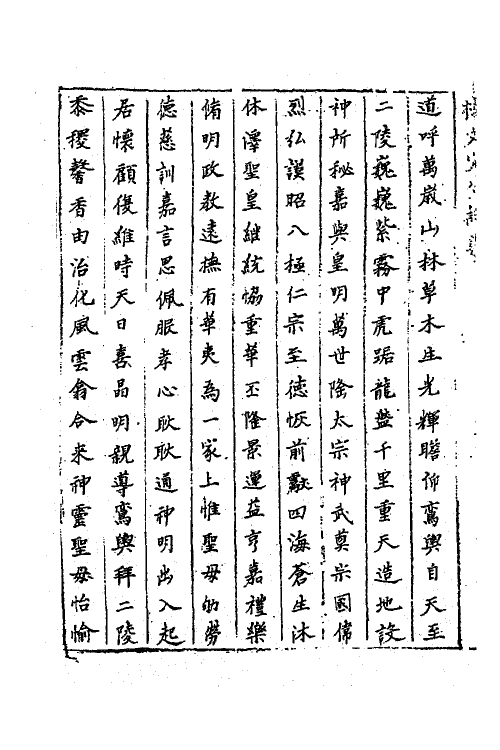 道呼萬嵗山林草木生光輝瞻仰鸞輿自天至
二陵巍巍紫霧中虎踞龍盤千里重天造地設
神所秘嘉與皇明萬世隆太宗神武奠宗國偉
烈弘謨昭八極仁宗至德恢前功四海蒼生沐
休澤聖皇繼統協重華丕隆景運益亨嘉禮樂
脩明政教遠撫有華夷為一家上惟聖母劬勞
德慈訓嘉言思佩服孝心耿耿通神明出入起
居懷顧復維時天日喜晶明親導鸞輿拜二陵
黍稷馨香由治化風雲翕合来神靈聖母怡愉